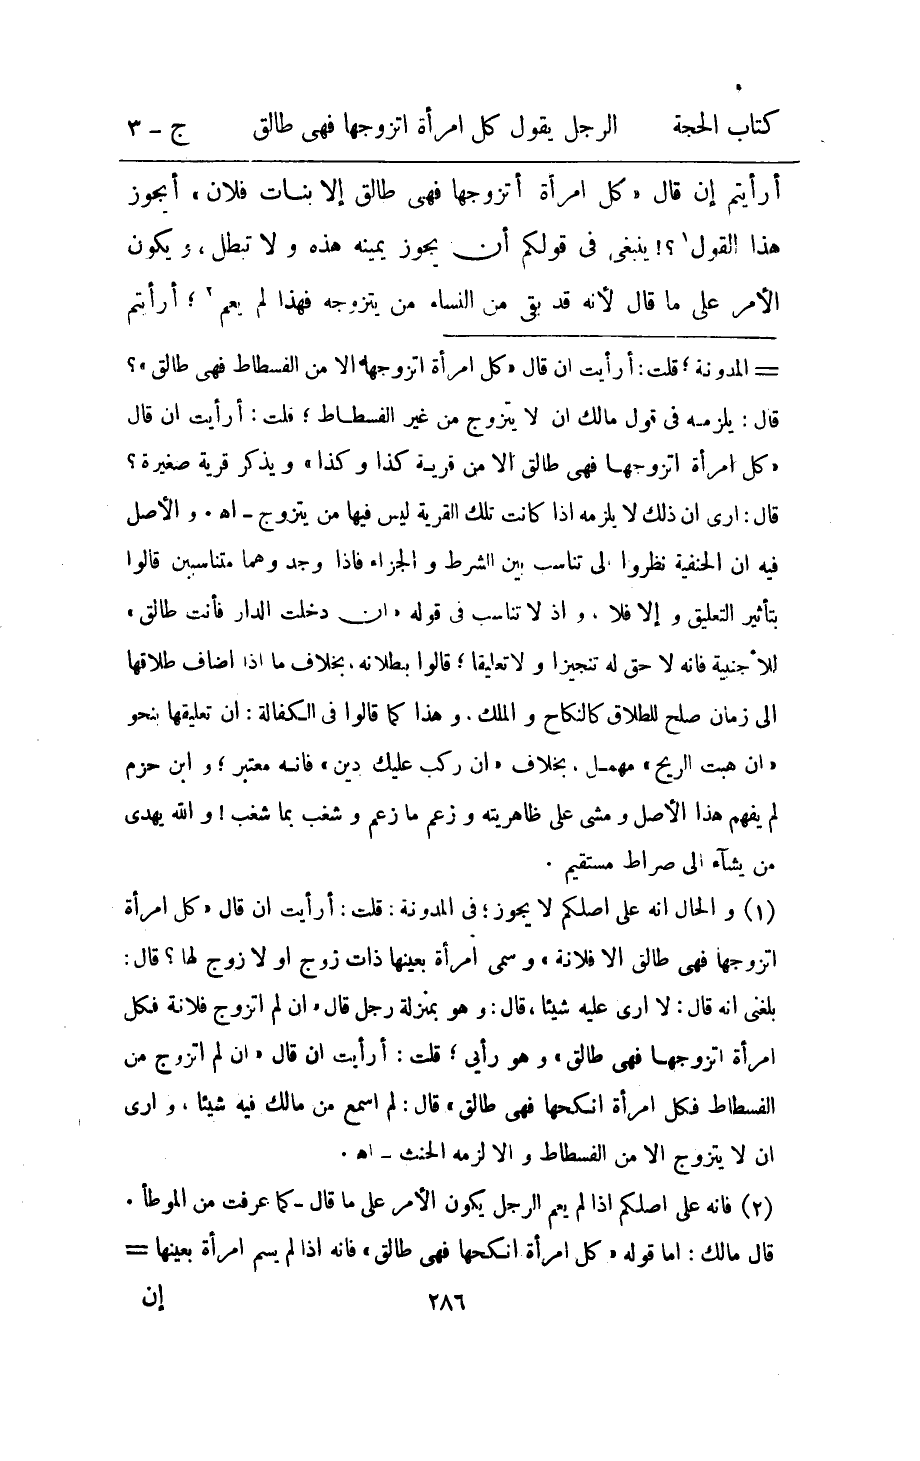 كتاب الحجة الرجل يقول كل امرأة اتزوجها فهى طالق ج - ٣
أرأيتم إن قال «كل امرأة أتزوجها فهى طالق إلا بنات فلان» أيجوز
هذا القول١ ؟! ينبغى فى قولكم أن يجوز يمينه هذه و لا تبطل، و يكون
الأمر على ما قال لأنه قد بقى من النساء من يتزوجه فهذا لم يعم٢ ؛ أرأيتم
= المدونة؛ قلت: أرأيت ان قال «كل امرأة اتزوجها الا من الفسطاط فهى طالق»؟
قال: يلزمه فى قول مالك ان لا يتزوج من غير الفسطاط؛ قلت: أرأيت ان قال
«كل امرأة اتزوجها فهى طالق الا من قرية كذا و كذا» و يذكر قرية صغيرة؟
قال: ارى ان ذلك لا يلزمه اذا كانت تلك القرية ليس فيها من يتزوج - اه. و الأصل
فيه ان الحنفية نظروا الى تناسب بين الشرط و الجزاء فاذا وجد وهما متناسبين قالوا
بتأثير التعليق و إلا فلا، و اذ لا تناسب فى قوله «ان دخلت الدار فأنت طالق»
للأجنبية فانه لا حق له تنجيزا و لا تعليقا؛ قالوا ببطلانه، بخلاف ما اذا اضاف طلاقها
الى زمان صلح للطلاق كالنكاح و الملك، و هذا كما قالوا فى الكفالة: ان تعليقها بنحو
«ان هبت الريح» مهمل، بخلاف «ان ركب عليك دين» فانه معتبر؛ و ابن حزم
لم يفهم هذا الأصل و مشى على ظاهريته و زعم ما زعم و شغب بما شغب! و الله يهدى
من يشآء الى صراط مستقيم.
(١) و الحال انه على اصلكم لا يجوز؛ فى المدونة: قلت: أرأيت ان قال «كل امرأة
اتزوجها فهى طالق الا فلانة» و سمى امرأة بعينها ذات زوج او لا زوج لها؟ قال:
بلغنى انه قال: لا ارى عليه شيئا، قال: و هو بمنزلة رجل قال «ان لم اتزوج فلانة فكل
امرأة اتزوجها فهى طالق» و هو رأيى؛ قلت: أرأيت ان قال «ان لم اتزوج من
الفسطاط فكل امرأة انكحها فهى طالق» قال: لم اسمع من مالك فيه شيئا، و ارى
ان لا يتزوج الا من الفسطاط و الا لزمه الحنث - اه.
(٢) فانه على اصلكم اذا لم يعم الرجل يكون الأمر على ما قال - كما عرفت من الموطأ.
قال مالك: اما قوله «كل امرأة انكحها فهى طالق» فانه اذا لم يسم امرأة بعينها =
٢٨٦ إن